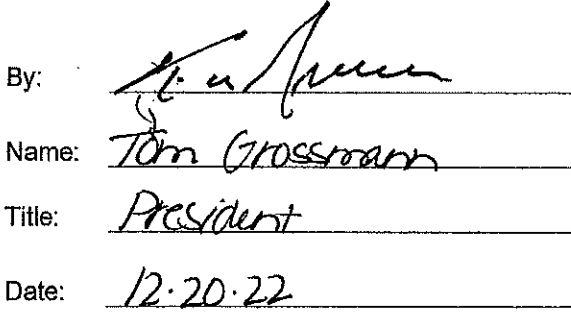 By:
Name: Tom Grossmann
Title: President
Date: 12.20.22